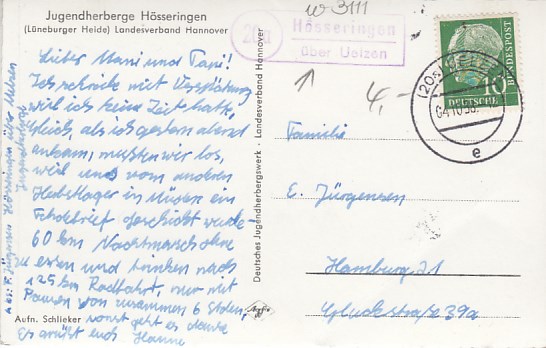 Jugendherberge Hösseringen
(Lüneburger Heide) Landesverband Hannover
Lieber Mani und Tapi!
Ich schreibe mit Verspätung
weil ich keine Zeit hatte,
gleich, als ich gestern abend
ankam, mußten wir los,
weil uns vom anderen
Herbstlager in Müden ein
Fehdebrief geschickt wurde
60 km Nachtmarsch ohne
essen und trinken nach
125 km Radfahrt, nur mit
Pausen von zusammen 6 Stden,
sonst geht es danke
Es grüßt euch Hanne
Abs: F. Jürgensen Hösseringen über Uelzen
Jugendherberge
Aufn. Schlieker
Deutsches Jugendherbergswerk · Landesverband Hannover
w 3111
20a
Hösseringen
über Uelzen
4,-
DEUTSCHE
BUNDESPOST
10
(20a) UELZEN
04.10.56.
e
Familie
E. Jürgensen
Hamburg 21
Gluckstraße 39a